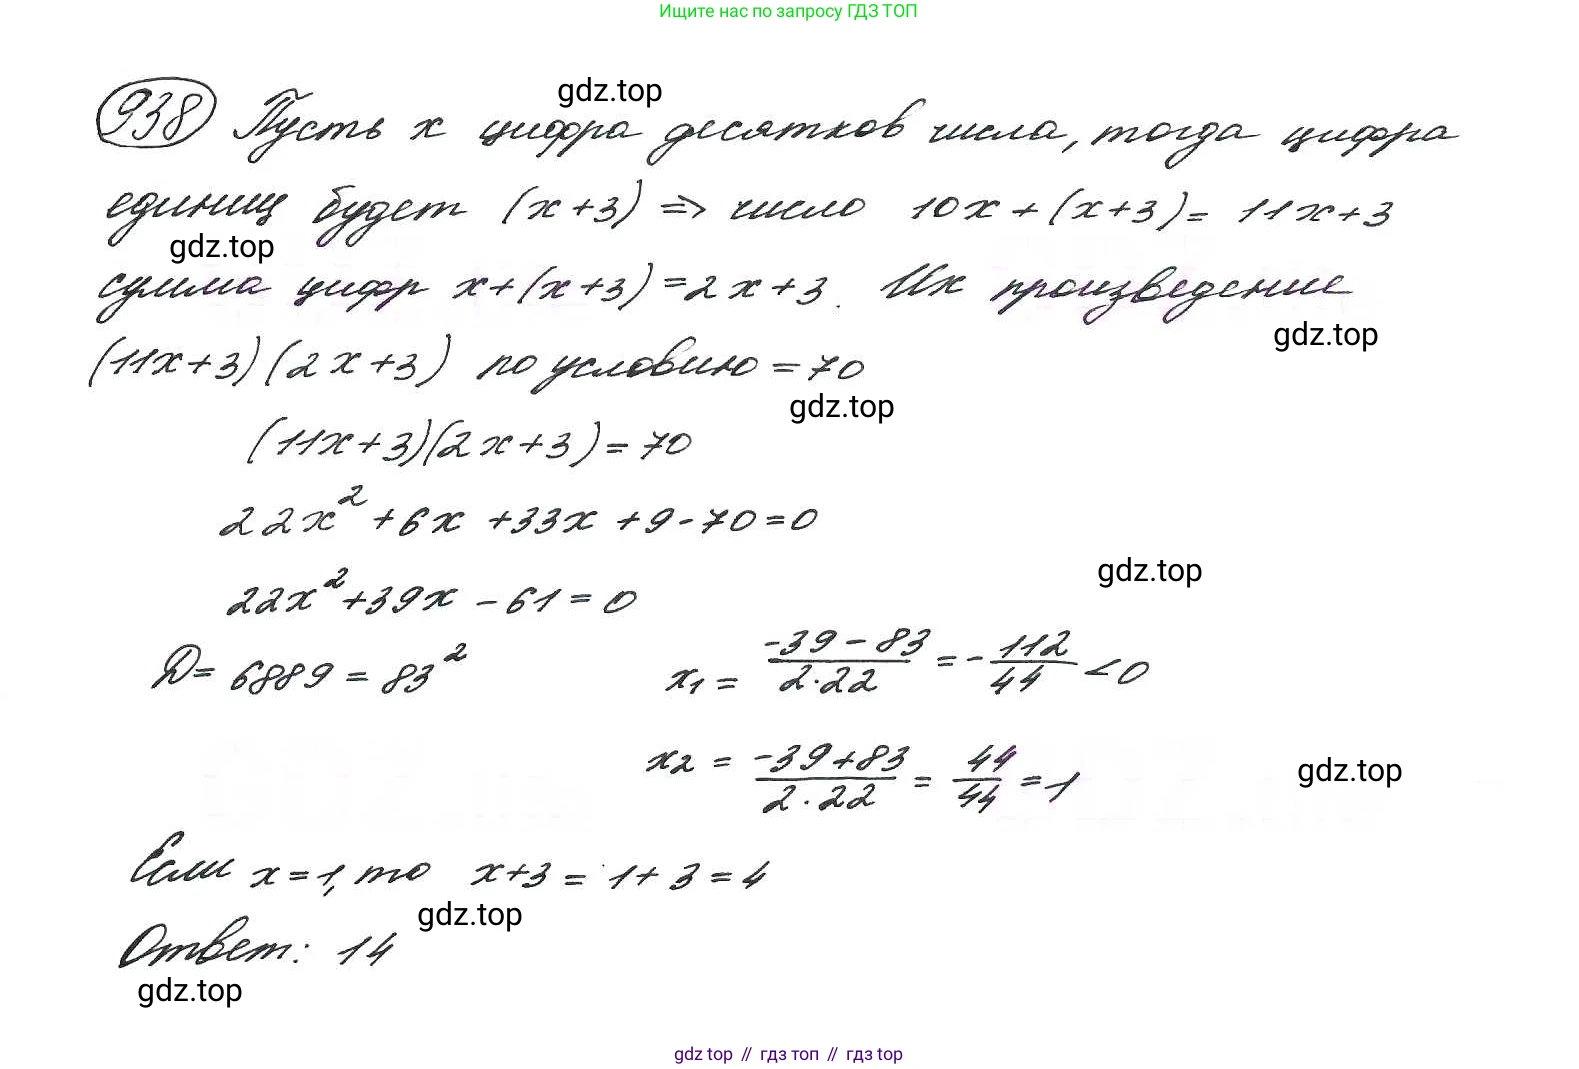 Ищите нас по запросу ГДЗ ТОП
gdz.top
938 Пусть x цифра десятков числа, тогда цифра
единиц будет (x+3) => число 10x+(x+3)= 11x+3
gdz.top
сумма цифр x+(x+3)=2x+3. Их произведение
gdz.top
(11x+3)(2x+3) по условию =70
gdz.top
(11x+3)(2x+3)=70
22x²+6x+33x+9-70=0
gdz.top
22x²+39x-61=0
D=6889=83² x₁= (-39-83)/(2·22) = -112/44 <0
x₂ = (-39+83)/(2·22) = 44/44 =1
gdz.top
Если x=1, то x+3=1+3=4
gdz.top
Ответ: 14
gdz.top
gdz top // гдз топ // гдз top